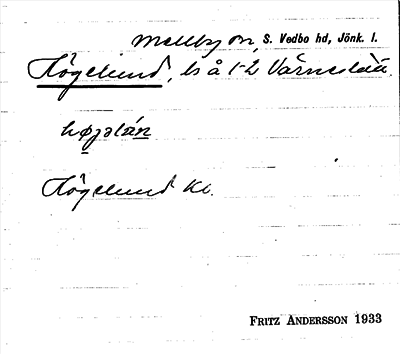 Mellby sn, S. Vedbo hd, Jönk. l.
Högelund, ls å 1-2 Värneslätt
høgəlún
Högelund Kb.
FRITZ ANDERSSON 1933